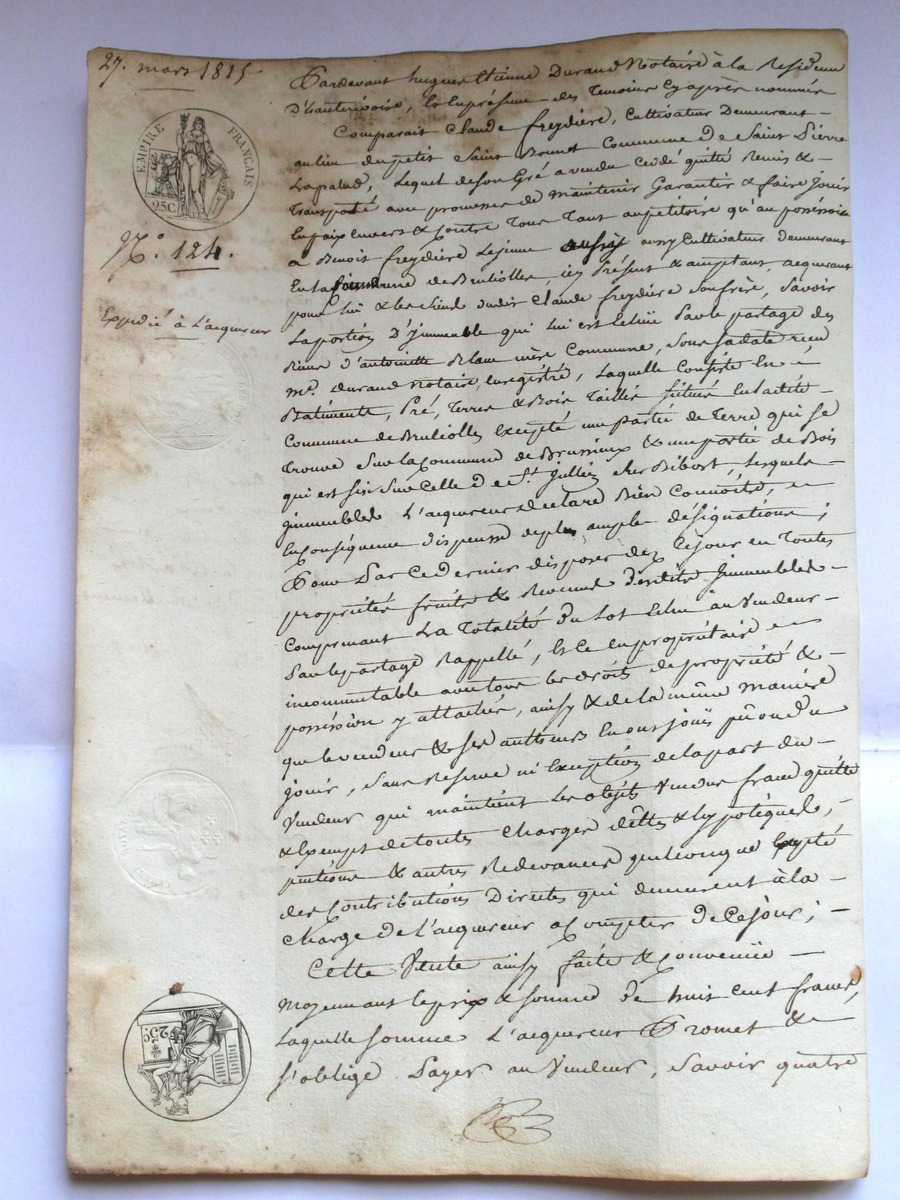 27. mars 1815.
EMPIRE FRANÇAIS
25C.
N.° 124.
Expedié à l'acquereur
25C.
Pardevant hugues Etienne Durand Notaire à la Residence
D'hauterivoire, & en présence des Temoins cy après nommés
Comparait Claude freydière, Cultivateur Demeurant
au lieu du petit Saint Bonnet Commune De Saint Pierre
Lapalud, Lequel de son Gré a vendu Cédé quitté Remis &
Transporté avec promesse de maintenir Garantir & faire jouir
En paix envers & contre Tous Tant au pétitoire qu'au posséssoire
a Benoit freydière Lejeune aussy Cultivateur demeurant
En la Commune de Brulioles, icy Présent & acceptant, acquerant
pour lui & les siens dudit Claude freydière son frère, Savoir
La portion D'Immeuble qui lui est Echüe Par le partage des
Biens d'antoinette Blanc mère Commune, sous sa date reçu
m.e Durand Notaire, enregistré, Laquelle Consiste En
Batiments, Pré, Terres & Bois Taillis situés en ladite
Commune de Brulioles excepté une partie de Terre qui se
trouve sur la Commune de Brussieux & une partie de Bois
qui est sis sur Celle de S.t Jullien sur Bibost, Lesquels
Immeubles L'acquereur declare Bien Connoitre, en
Conséquence dispense de plus ample désignations;
Pour Par Ce dernier disposer dez Cejour en Toutes
propriétés fruits & Revenus desdits Immeubles
Comprenant La Totalité du Lot Echu au Vendeur
Par le partage Rappellé, & ce en propriétaire
incommutable avec tous les droits de propriété &
posséssion y attachés, ainsy & de la même manière
que le vendeur & ses autheurs En ont joüi pû ou dû
joüir, Sans Réserve ni Exception de la part du
Vendeur qui maintient Les objéts Vendus francs quitte
& Exempt de toutes Charges dêttes & hypotéques,
pentions & autres Redevances quelconque Excepté
des Contributions Directes qui demeurent à la
Charge de l'acquereur a Compter de Cejour;
Cette Vente ainsy faite & Convenüe
Moyennant le prix & somme De huit cent francs,
Laquelle somme L'acquereur Promet &
s'oblige Payer au Vendeur, Savoir quatre